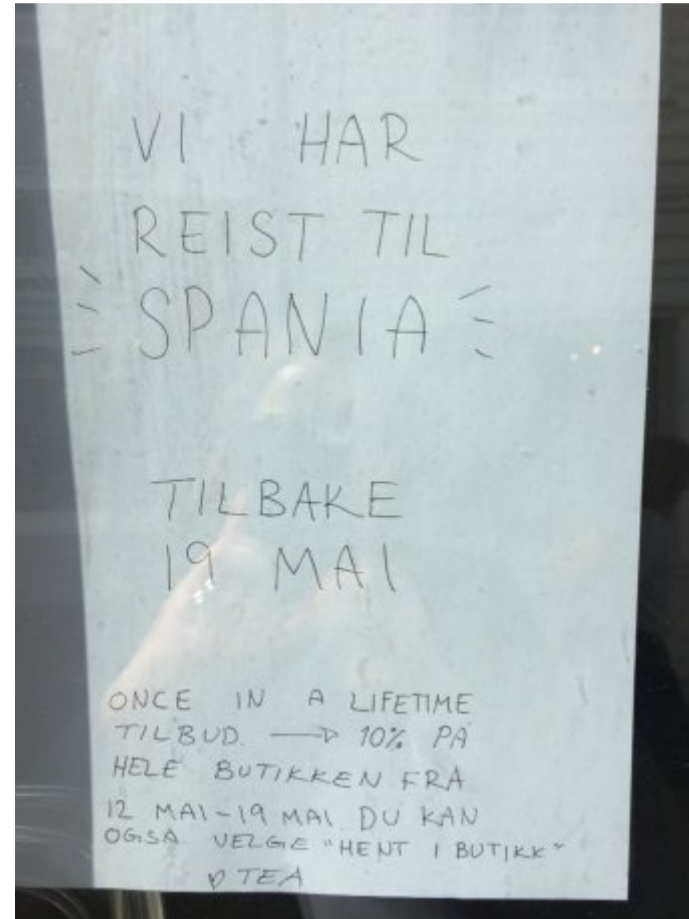 VI HAR
REIST TIL
SPANIA
TILBAKE
19 MAI
ONCE IN A LIFETIME
TILBUD. → 10% PÅ
HELE BUTIKKEN FRA
12 MAI-19 MAI DU KAN
OGSÅ VELGE "HENT I BUTIKK"
♡ TEA